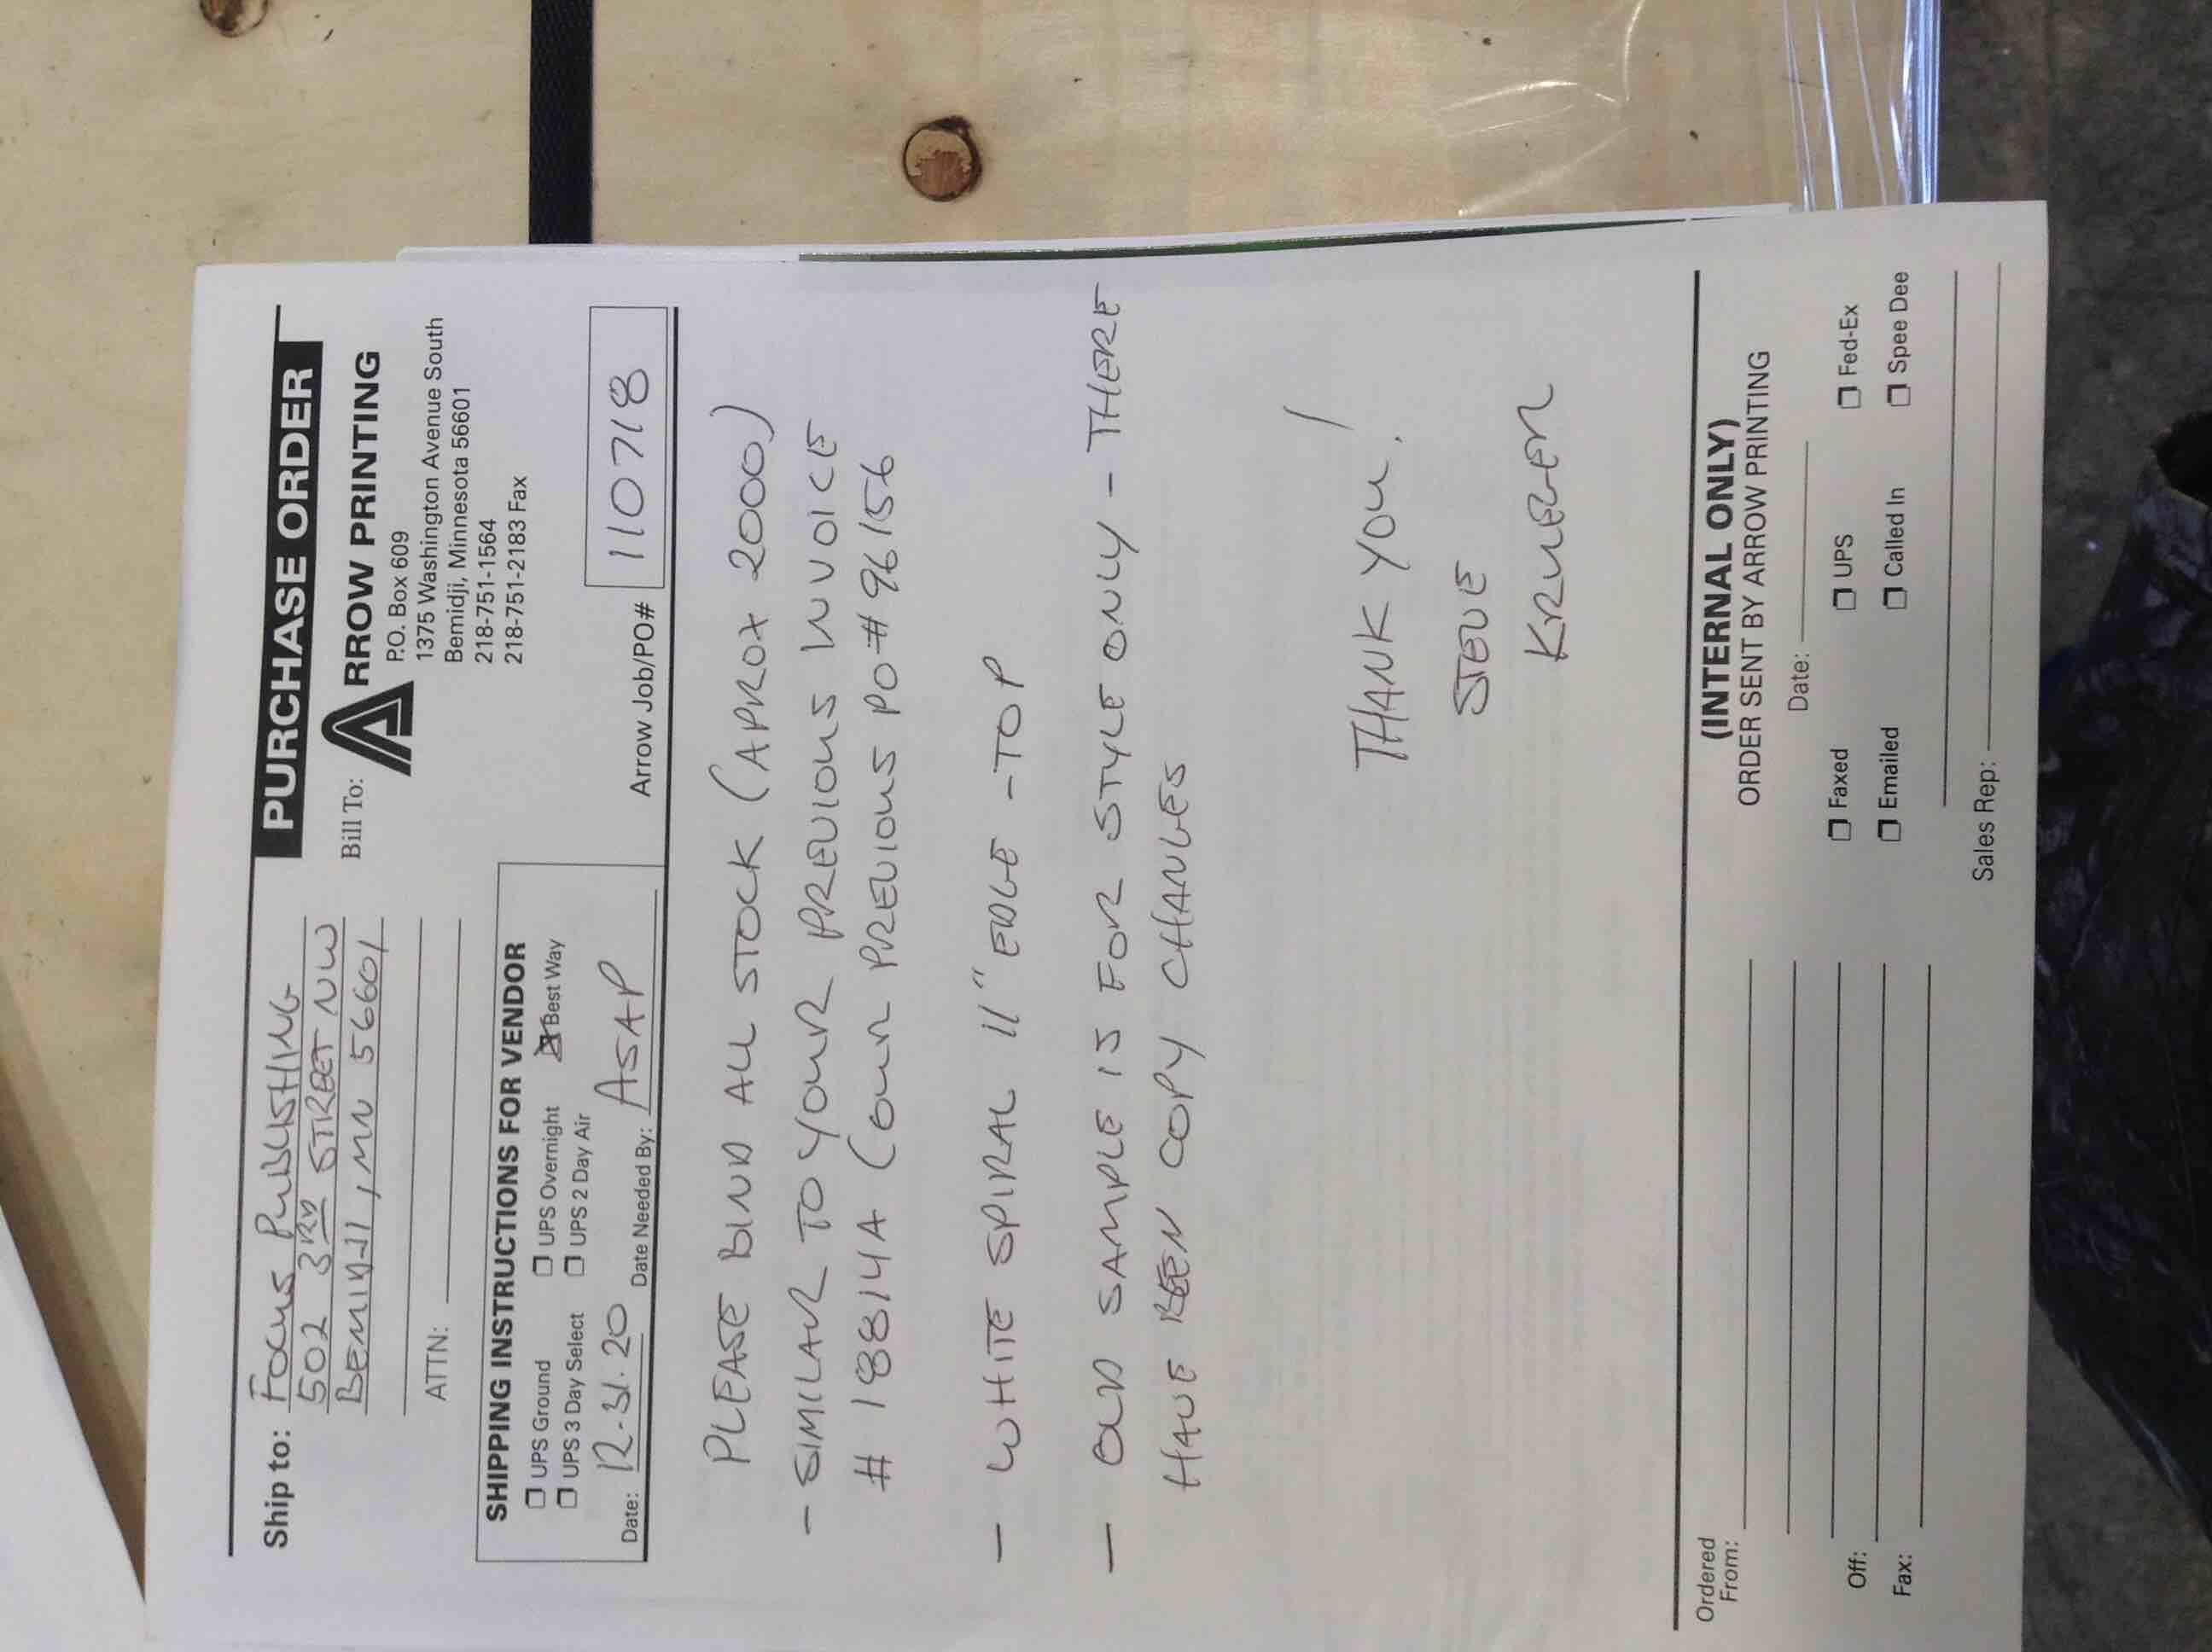 PURCHASE ORDER
Ship to: FOCUS PUBLISHING
502 3RD STREET NW
BEMIDJI, MN 56601
ATTN:
Bill To:
ARROW PRINTING
P.O. Box 609
1375 Washington Avenue South
Bemidji, Minnesota 56601
218-751-1564
218-751-2183 Fax
SHIPPING INSTRUCTIONS FOR VENDOR
☐ UPS Ground ☐ UPS Overnight ☒ Best Way
☐ UPS 3 Day Select ☐ UPS 2 Day Air
Date: 12-31-20 Date Needed By: ASAP
Arrow Job/PO# 110718
PLEASE BIND ALL STOCK (APROX 2000)
- SIMILAR TO YOUR PREVIOUS INVOICE
# 18814A (OUR PREVIOUS PO# 96156
- WHITE SPIRAL 11" EDGE - TOP
- OLD SAMPLE IS FOR STYLE ONLY - THERE
HAVE BEEN COPY CHANGES
THANK YOU!
STEVE
KRUEGER
(INTERNAL ONLY)
ORDER SENT BY ARROW PRINTING
Ordered
From:
Date:
☐ Faxed ☐ UPS ☐ Fed-Ex
Off:
☐ Emailed ☐ Called In ☐ Spee Dee
Fax:
Sales Rep: